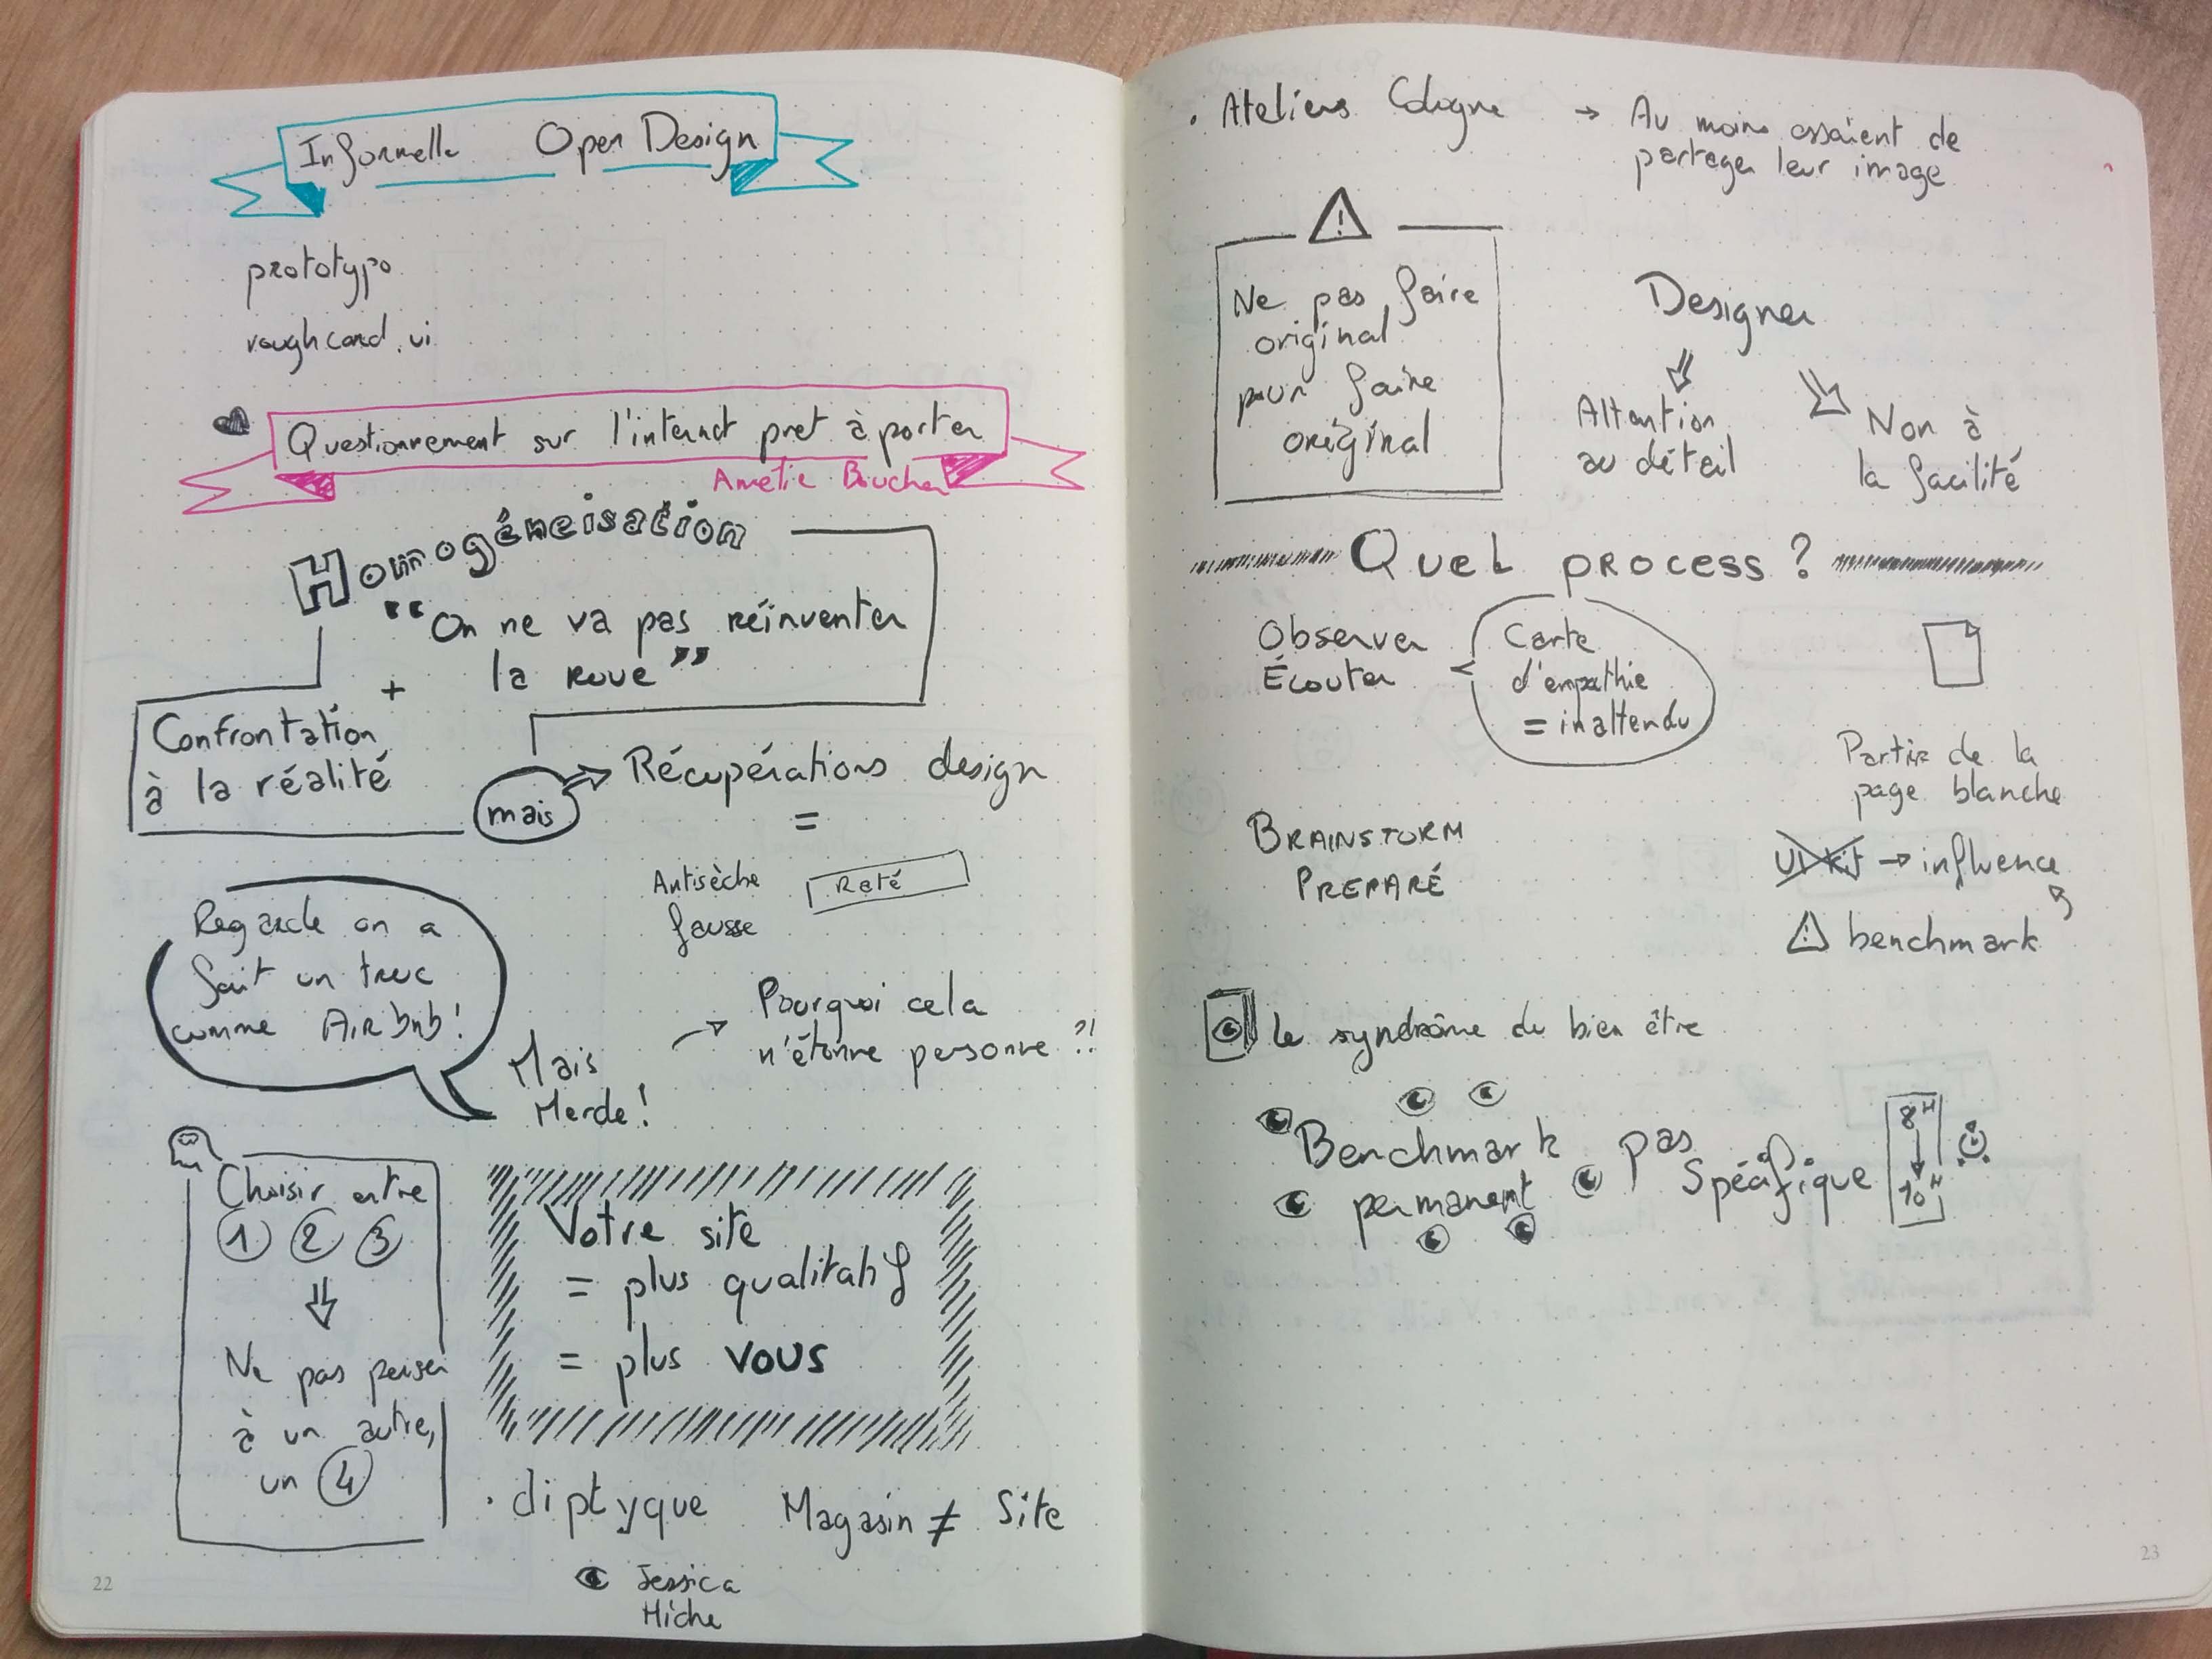 Informelle Open Design
prototypo
roughcard.ui
Questionnement sur l'internet pret à porter
Amélie Boucher
Homogéneisation
"On ne va pas réinventer
la roue"
+
Confrontation
à la réalité
mais
Récupérations design
=
Antisèche
fausse
Raté
Regarde on a
fait un truc
comme AirBnb!
Mais
Merde!
Pourquoi cela
n'étonne personne ?!
Choisir entre
1 2 3
Ne pas penser
à un autre,
un 4
Votre site
= plus qualitatif
= plus vous
. diptyque Magasin ≠ Site
Jessica
Hiche
22
. Ateliers Cologne → Au moins essaient de
partager leur image
Ne pas faire
original
pour faire
original
Designer
Attention
au détail
Non à
la facilité
Quel process ?
Observer
Écouter
Carte
d'empathie
= inattendu
Partir de la
page blanche
UI kit → influence
benchmark
Brainstorm
Preparé
le syndrôme du bien être
Benchmark
permanent
pas
spécifique
8H
10H
23